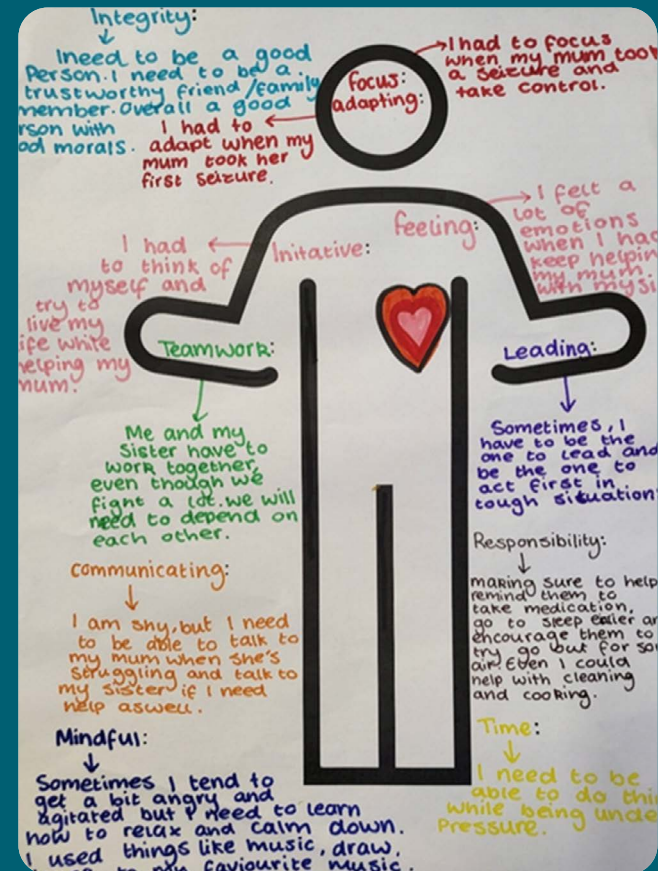 Integrity:
I need to be a good
Person. I need to be a
trustworthy friend/family
member. Overall a good
rson with
od morals.
Focus:
adapting:
I had to focus
when my mum took
a seizure and
take control.
I had to
adapt when my
mum took her
first seizure.
feeling:
I felt a
lot of
emotions
when I had
keep helpin
my mum.
with mysi
Initative:
I had
to think of
myself and
try to
live my
ife while
helping my
mum.
Teamwork:
Me and my
Sister have to
work together,
even though we
fight a lot. we will
need to depend on
each other.
Leading:
Sometimes, I
have to be the
one to lead and
be the one to
act first in
tough situation
communicating:
I am shy, but I need
to be able to talk to
my mum when she's
struggling and talk to
my sister if I need
help aswell.
Responsibility:
making sure to help
remind them to
take medication,
go to sleep easier an
encourage them to
try go out for so
air. Even I could
help with cleaning
and cooking.
Mindful:
Sometimes I tend to
get a bit angry and
agitated but I need to learn
how to relax and calm down.
I used things like music, draw,
to my faviourite music.
Time:
I need to be
able to do thi
while being unde
Pressure.